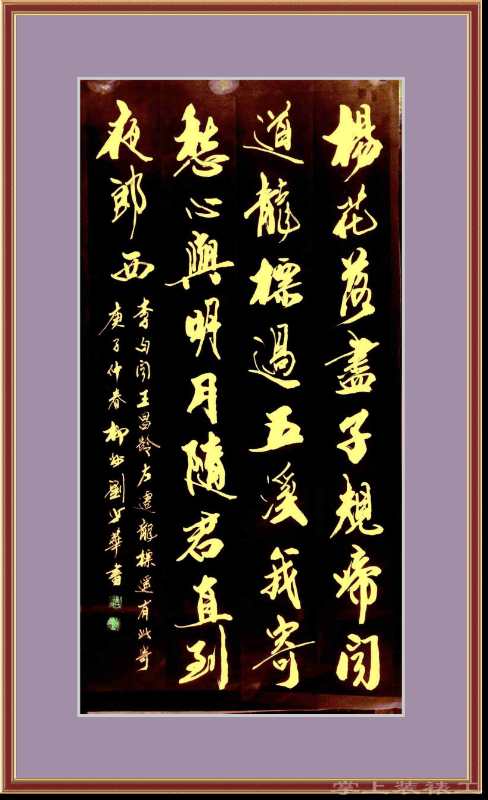 楊花落盡子規啼聞
道龍標過五溪我寄
愁心與明月隨君直到
夜郎西
李白聞王昌齡左遷龍標遥有此寄
庚子仲春柳州劉華書
掌上装裱工